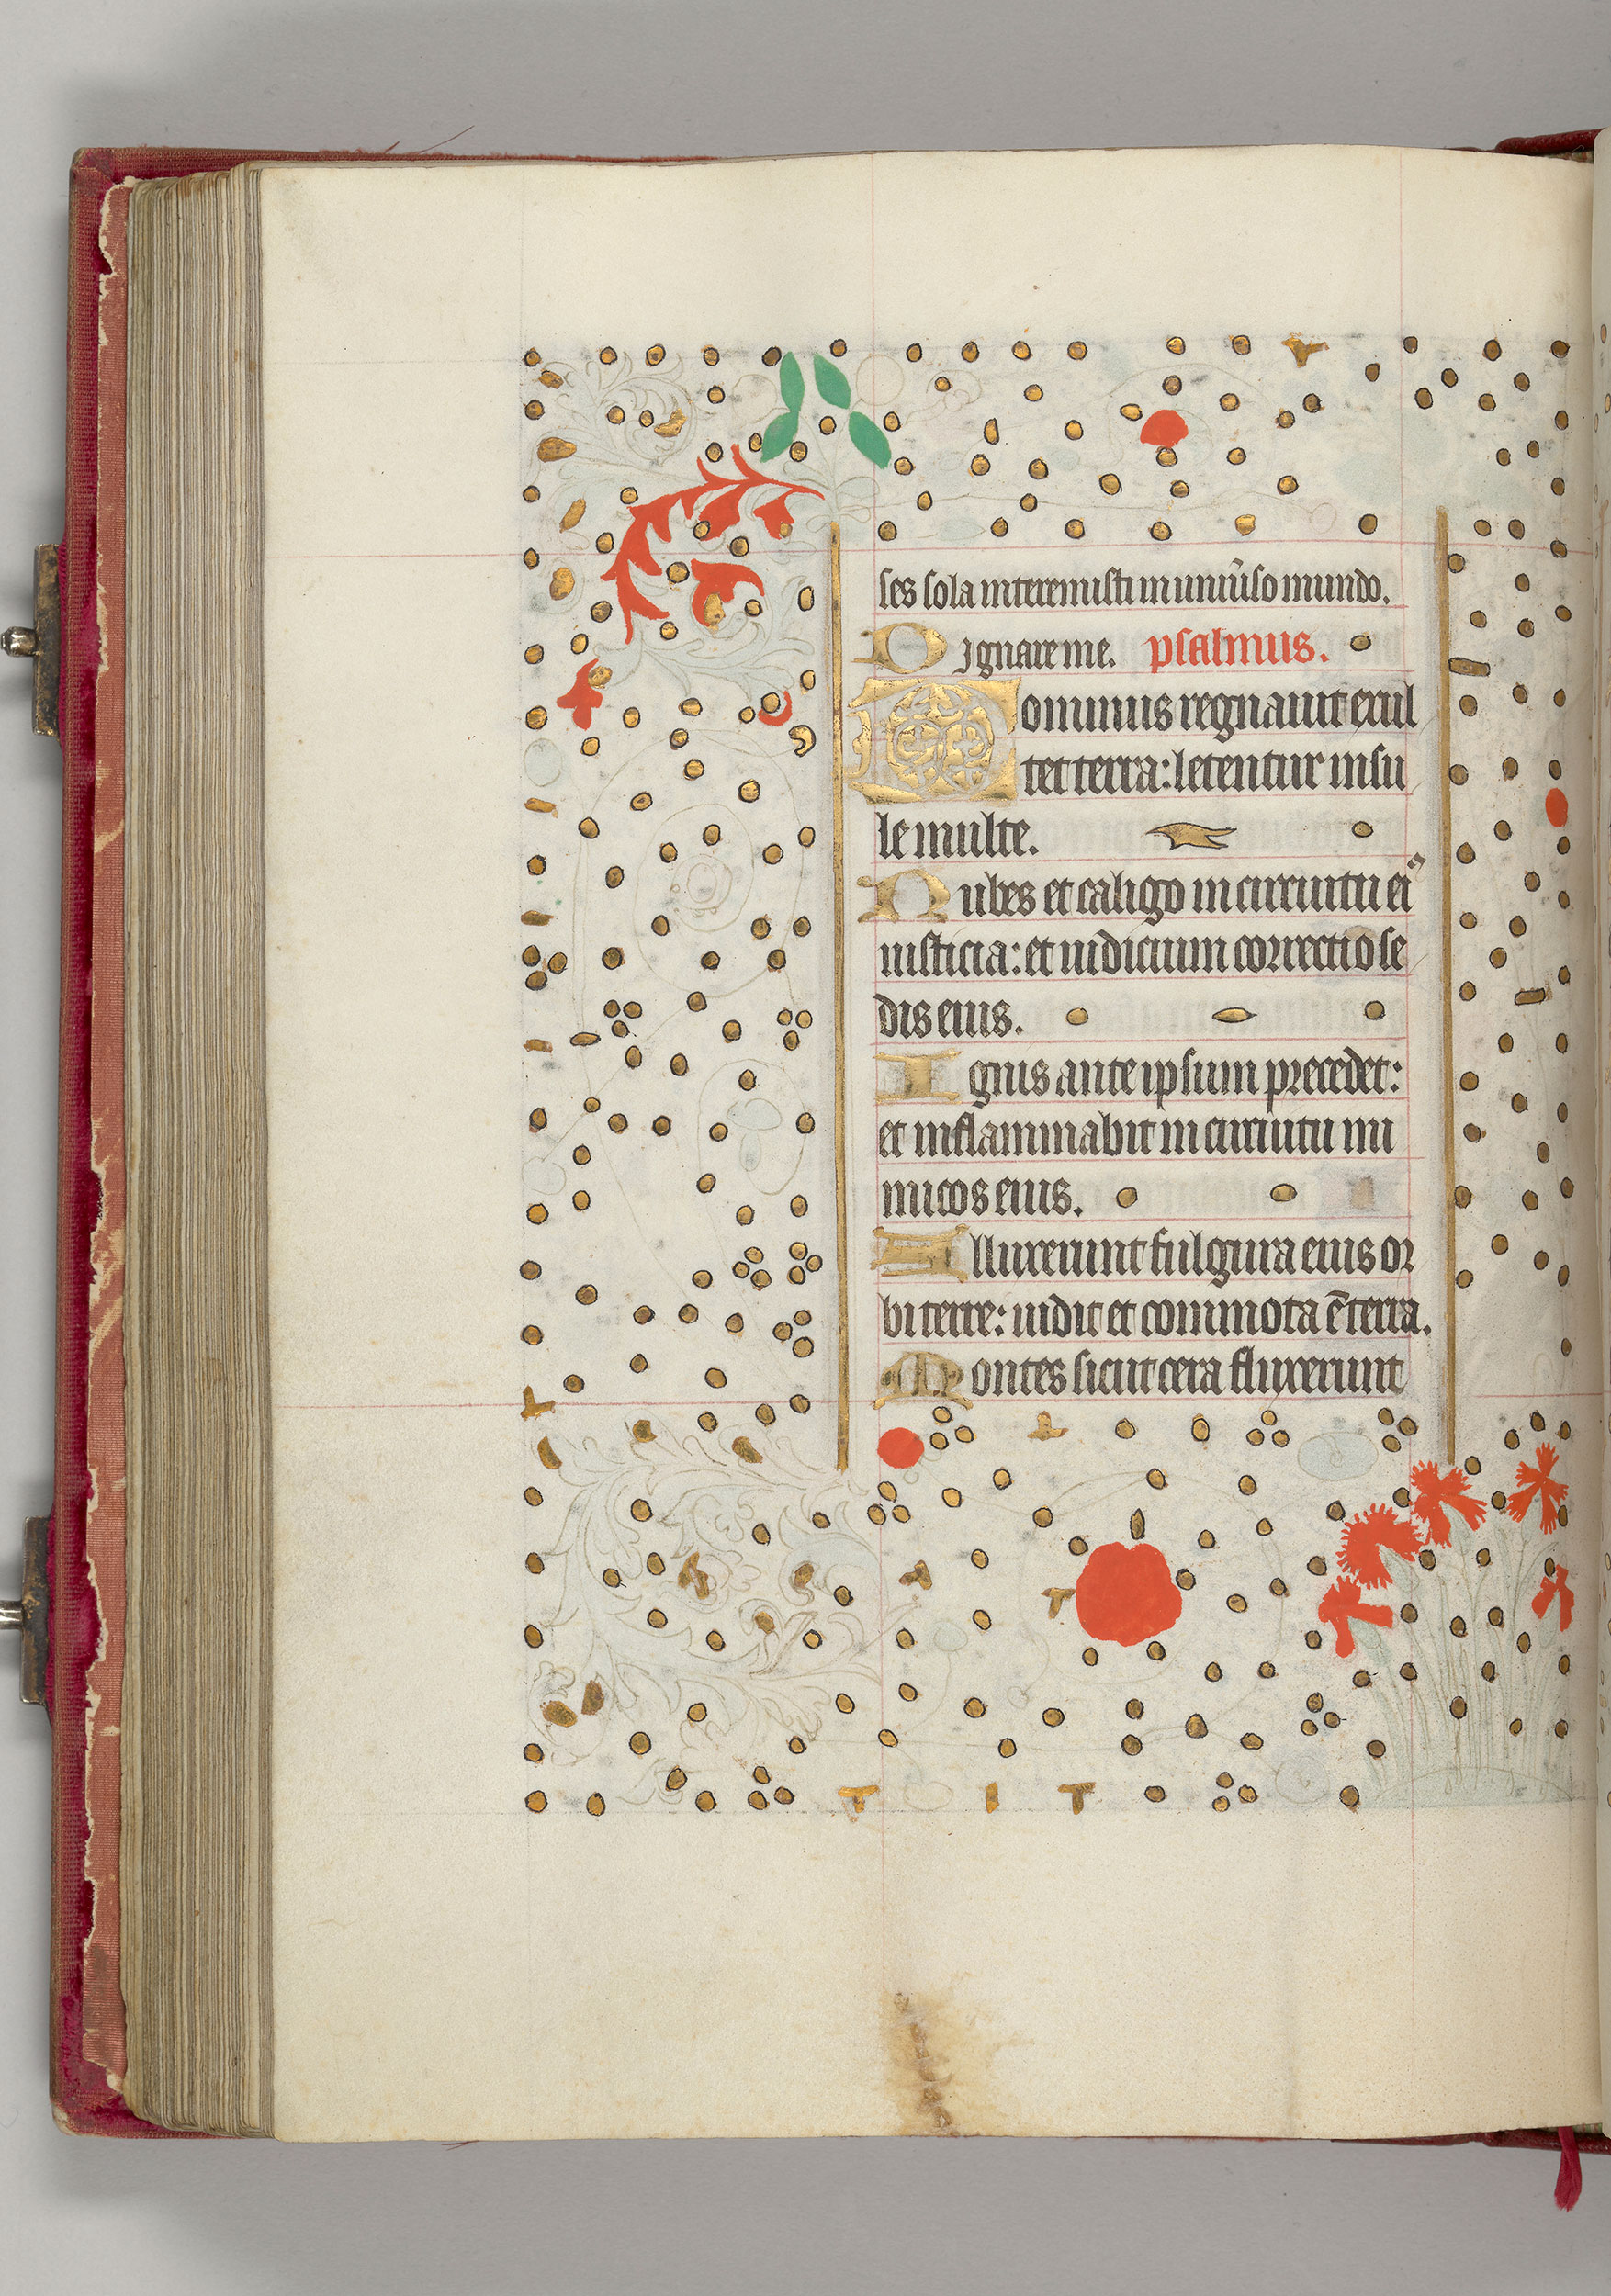 ses sola interemisti in uniu̅so mundo.
Dignare me. psalmus.
Dominus regnauit exul
tet terra: letentur insu
le multe.
Nubes et caligo in circuitu eiꝰ
iusticia: et iudicium correctio se
dis eius.
Ignis ante ipsum precedet:
et inflammabit in circuitu ini
micos eius.
Alluxerunt fulgura eius or
bi terre: uidit et commota e̅ terra.
Montes sicut cera fluxerunt